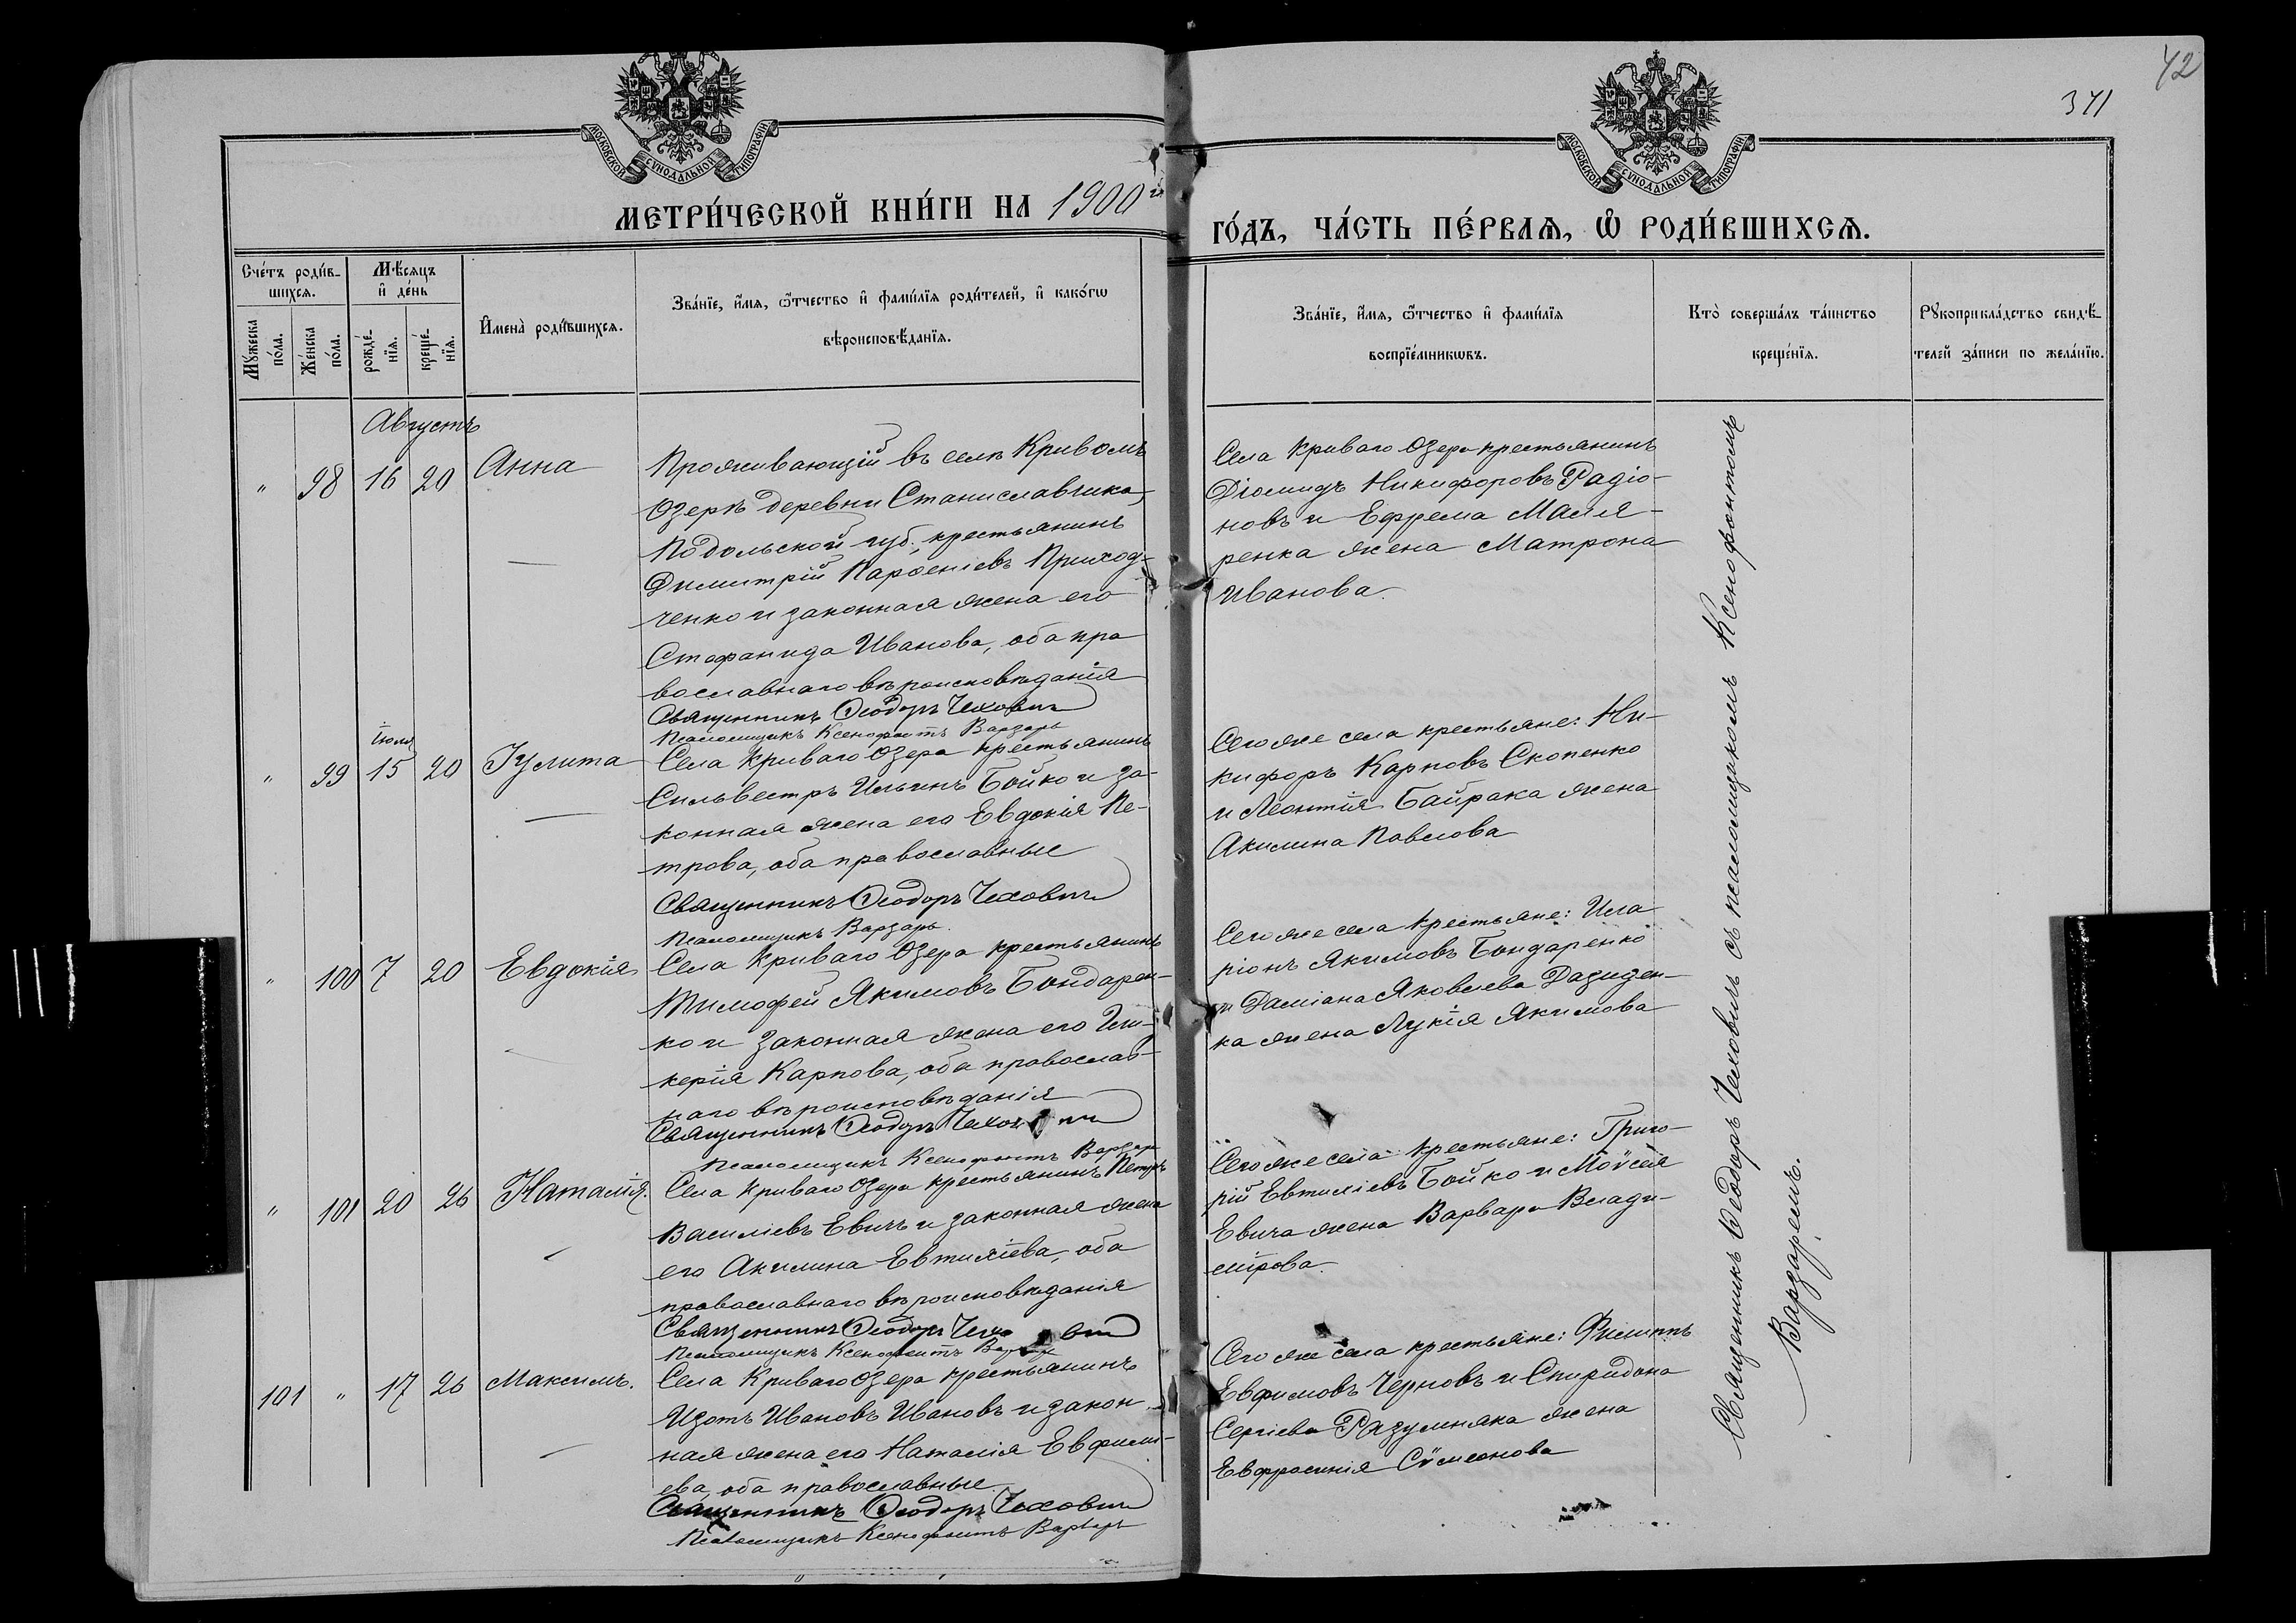 42
371
МОСКОВСКОЙ СѴНОДАЛЬНОЙ ТИПОГРАФІИ
МОСКОВСКОЙ СѴНОДАЛЬНОЙ ТИПОГРАФІИ
МЕТРИ́ЧЕСКОЙ КНИ́ГИ НА 1900й
ГО́ДЪ, ЧА́СТЬ ПЕ́РВАѦ, Ѡ҆ РОДИ́ВШИХСѦ.
Сче́тъ роди́в-
шихсѧ.
Мꙋ́жеска
по́ла.
Же́нска
по́ла.
Мѣ́сѧцъ
и҆ де́нь
рожде́-
нїѧ.
креще́-
нїѧ.
И҆мена̀ роди́вшихсѧ.
Зва́нїе, и҆́мѧ, ѻ҆́тчество и҆ фами́лїѧ роди́телей, и҆ како́гѡ
вѣроисповѣ́данїѧ.
Зва́нїе, и҆́мѧ, ѻ҆́тчество и҆ фами́лїѧ
воспрїе́мникѡвъ.
Кто̀ соверша́лъ та́инство
креще́нїѧ.
Рꙋкоприкла́дство свидѣ́-
телей за́писи по жела́нїю.
Августъ
" 98 16 20 Анна
Проживающій въ селѣ Кривомъ
Озерѣ деревни Станиславчика,
Подольской губ., крестьянинъ
Димитрій Парѳеніевъ Приход-
ченко и законная жена его
Стефанида Иванова, оба пра
вославнаго вѣроисповѣданія
Священникъ Ѳеодоръ Чехович
Псаломщикъ Ксенофонтъ Варзарь
Села Криваго Озера крестьянинъ
Діомидъ Никифоровъ Радіо-
новъ и Ефрема Маля-
ренка жена Матрона
Иванова.
Іюля
" 99 15 20 Іулита
Села Криваго Озера крестьянинъ
Сильвестръ Ильинъ Бойко и за-
конная жена его Евдокія Пе-
трова, оба православные
Священникъ Ѳеодоръ Чехович
Псаломщикъ Варзарь
Сего же села крестьяне: Ни-
кифоръ Карповъ Скопенко
и Леонтія Байрака жена
Акилина Павлова
" 100 7 20 Евдокія
Села Криваго Озера крестьянинъ
Тимофей Якимовъ Бондарен-
ко и законная жена его Гли-
керія Карпова, оба православ-
наго вѣроисповѣданія
Священникъ Ѳеодоръ Чехович
Псаломщикъ Ксенофонтъ Варзарь
Сего же села крестьяне: Ила
ріонъ Якимовъ Бондаренко
и Даміана Яковлева Давиден-
ка жена Лукія Якимова
" 101 20 26 Наталія.
Села Криваго Озера крестьянинъ Петръ
Василіевъ Евичъ и законная жена
его Акилина Евтихіева, оба
православнаго вѣроисповѣданія
Священникъ Ѳеодоръ Чехович
Псаломщикъ Ксенофонтъ Варзарь
Сего же села крестьяне: Григо-
рій Евтихіевъ Бойко и Моѵсея
Евича жена Варвара Влади-
мірова.
101 " 17 26 Максимъ.
Села Криваго Озера крестьянинъ
Изотъ Ивановъ Ивановъ и закон-
ная жена его Наталія Евфими-
ева, оба православные.
Священникъ Ѳеодоръ Чехович
Псаломщикъ Ксенофонтъ Варзарь
Сего же села крестьяне: Филиппъ
Евфимовъ Черновъ и Спиридона
Сергіева Разумняка жена
Евфросинія Сѵмеонова
Священникъ Ѳеодоръ Чеховичъ съ псаломщикомъ Ксенофонтомъ
Варзаремъ.